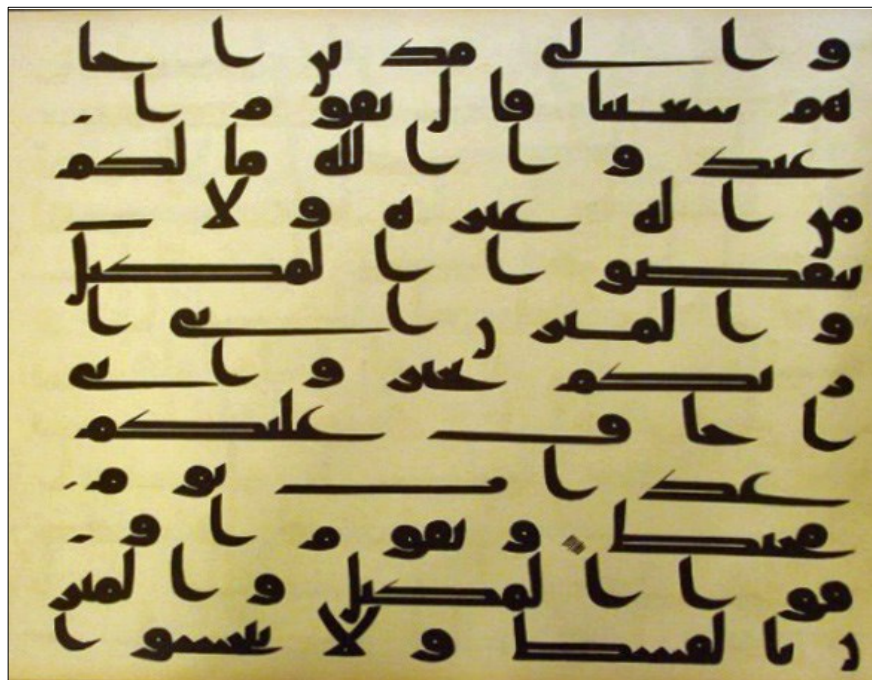 والى مدين اخا
هم شعيبا قال يقوم ا
عبدوا الله ما لكم
من اله غيره ولا
تنقصوا المكيل
والميزن اني ا
ريكم بخير واني
اخاف عليكم
عذاب يوم
محيط ويقوم او
فوا المكيل والميز
ن بالقسط ولا تبخسوا